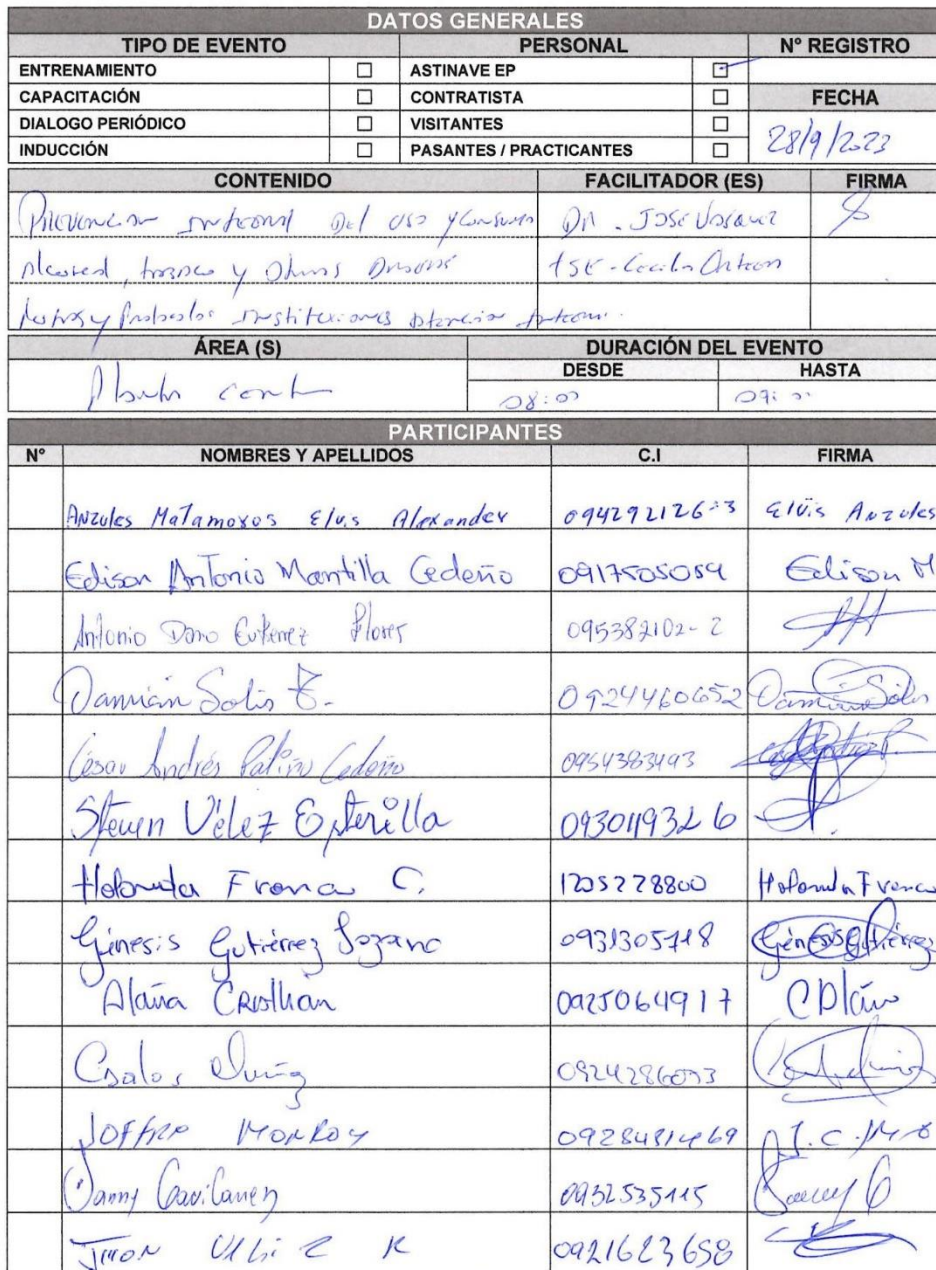 DATOS GENERALES
TIPO DE EVENTO PERSONAL N° REGISTRO
ENTRENAMIENTO ☐ ASTINAVE EP ☐
CAPACITACIÓN ☐ CONTRATISTA ☐ FECHA
DIALOGO PERIÓDICO ☐ VISITANTES ☐ 28/9/2023
INDUCCIÓN ☐ PASANTES / PRACTICANTES ☐
CONTENIDO FACILITADOR (ES) FIRMA
Prevencion Integral Del uso y Consumo DR. José Vasquez
Alcohol, tabaco y Otras Drogas TSE-Cecilia
y Protocolos Institucionales
ÁREA (S) DURACIÓN DEL EVENTO
DESDE HASTA
Planta 08:00 09:00
PARTICIPANTES
N° NOMBRES Y APELLIDOS C.I FIRMA
Anzules Matamoros Elvis Alexander Elvis Anzules
Edison Antonio Mantilla Cedeño 0917505059 Edison M
Antonio Gutierrez Flores 095382102-2
Damián Solis 0924460652 Damián Solis
César Andrés Patiño Cedeño 0954383493
Steven Vélez Esterilla 0930119326
Franco C. 1205278800 Franco
Génesis Gutiérrez Lozano 0931305718 Génesis Gutiérrez
Alaña Cristhian 0925064917
Carlos Muñiz
Joffre Monroy 0928481469
Danny Gavilanez 0932535115 Danny G
0921623658